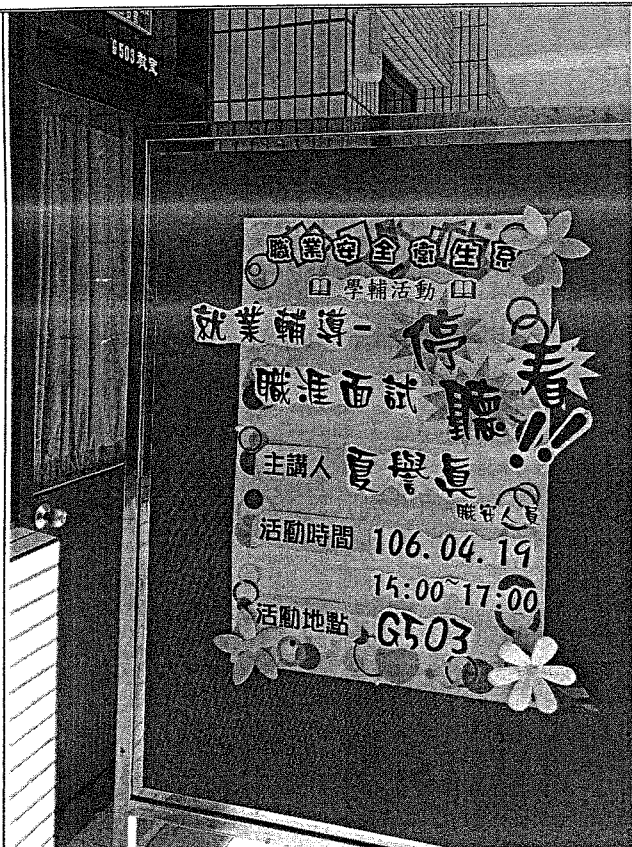 G503教室
職業安全衛生系
學輔活動
就業輔導-停看
職涯面試 聽!!
主講人 夏譽真
職安人員
活動時間 106.04.19
15:00~17:00
活動地點 G503